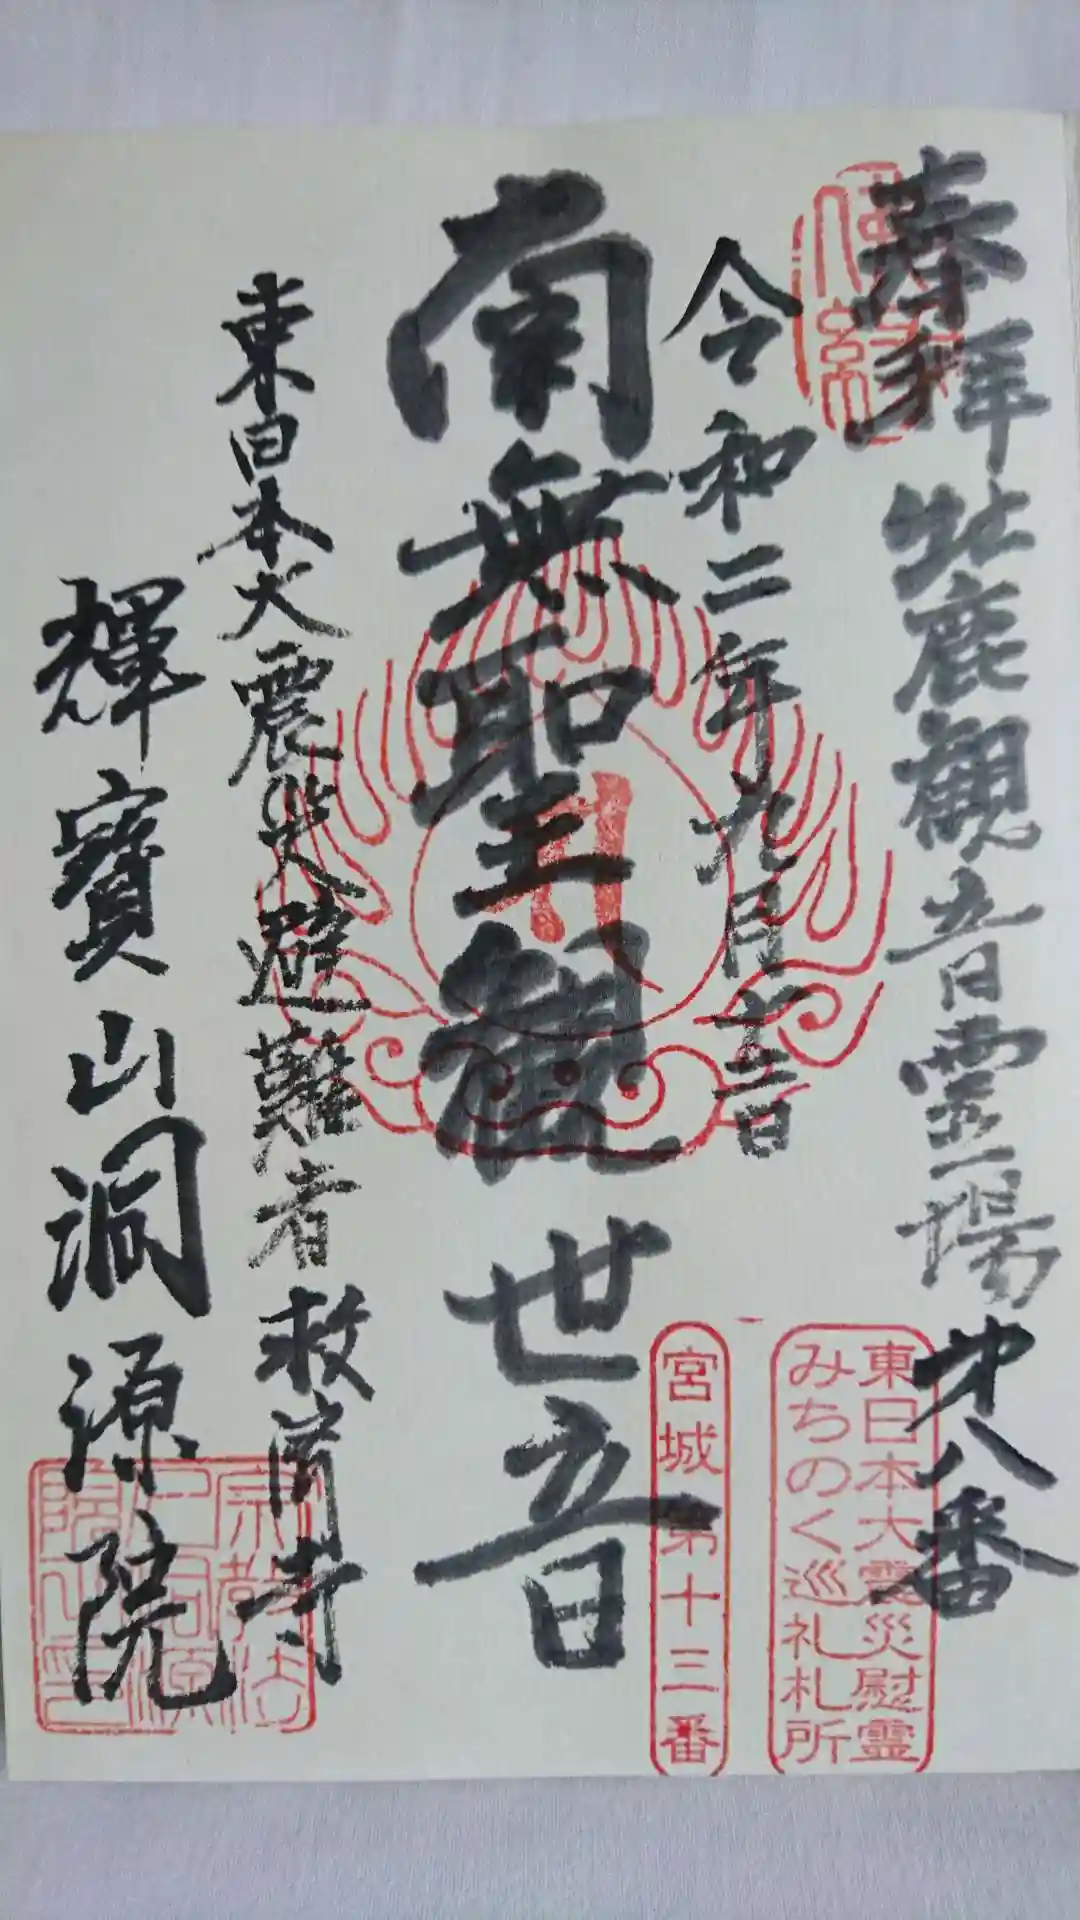 奉拝 牡鹿観音霊場才八番
東日本大震災慰霊
みちのく巡礼札所
宮城 第十三番
令和二年九月十三日
南無聖観世音
東日本大震災避難者救済寺
輝寶山洞源院